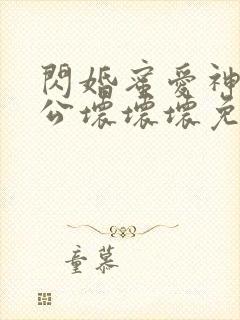 閃婚蜜愛神
公壞壞壞免
童慕